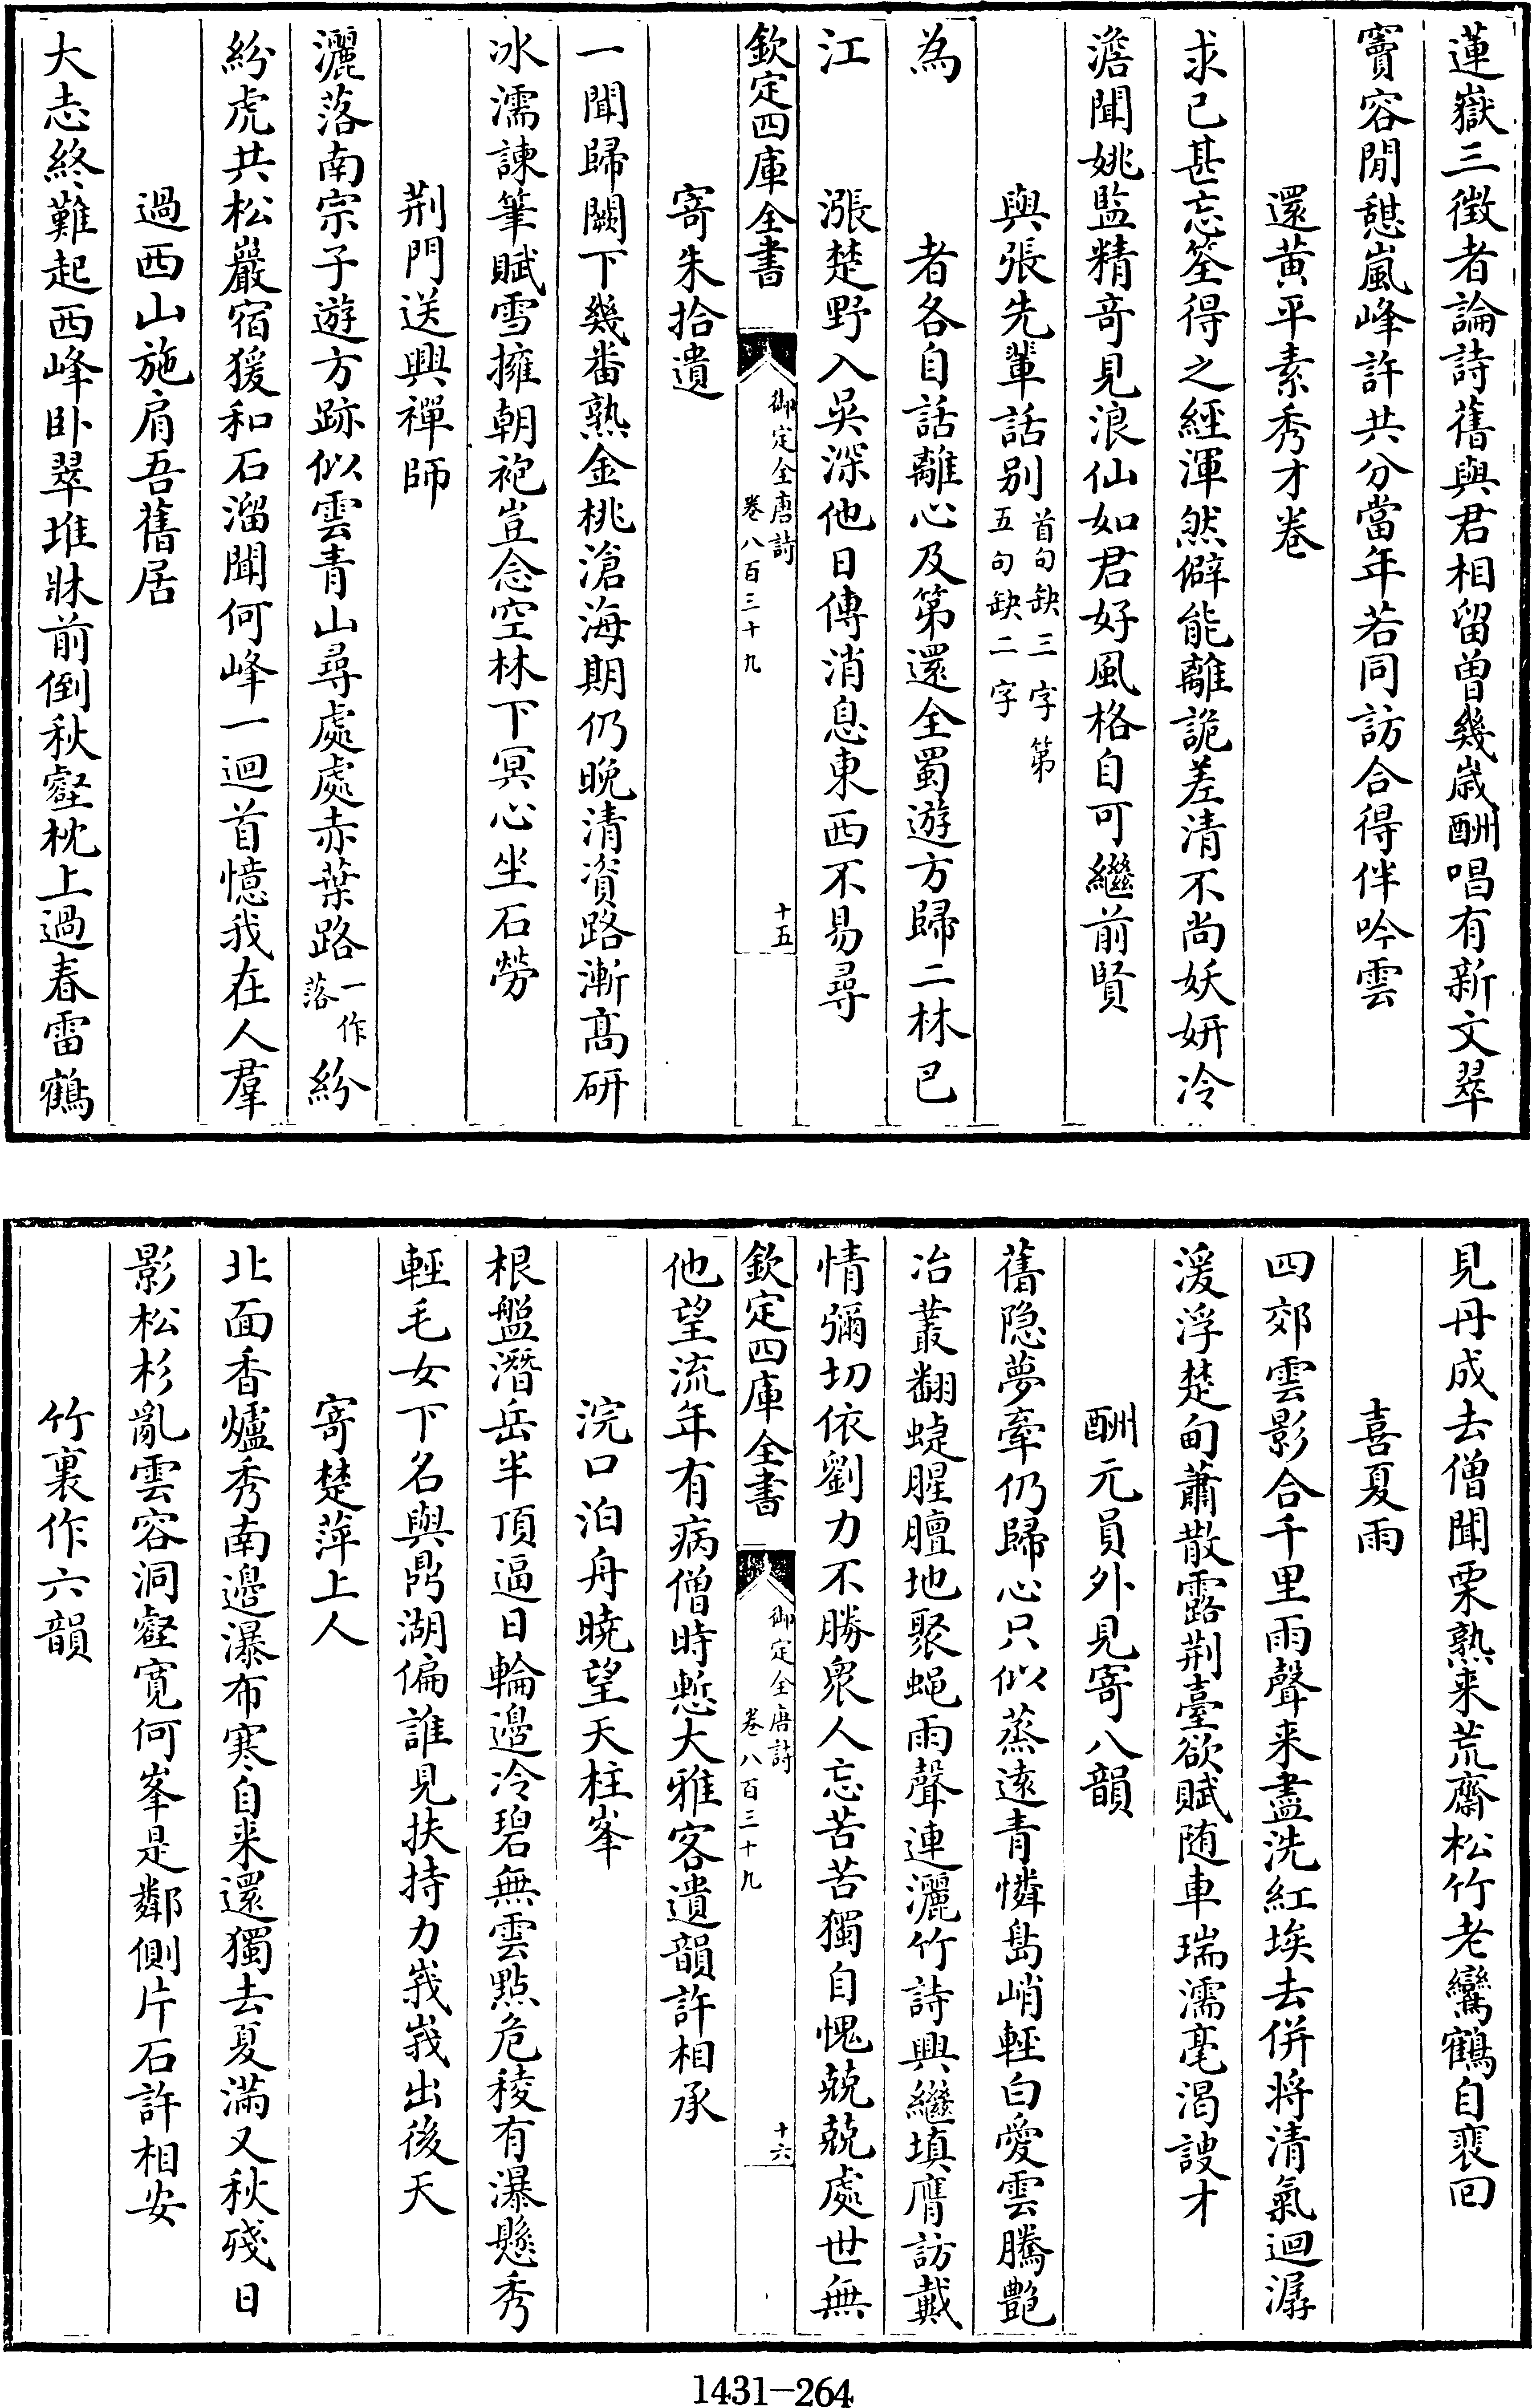 蓮嶽三徴者論詩舊與君相留曾幾歲酬唱有新文翠
竇容閒憩嵐峰許共分當年若同訪合得伴吟雲
還黄平素秀才卷
求已甚忘筌得之經渾然僻能離詭差清不尚妖妍冷
澹聞姚監精竒見浪仙如君好風格自可繼前賢
與張先輩話别首句缺三字第五句缺二字
為　　　者各自話離心及第還全蜀遊方歸二林已
江　　漲楚野入吳深他日傳消息東西不易尋
欽定四庫全書　御定全唐詩卷八百三十九　十五
寄朱拾遺
一聞歸闕下幾番熟金桃滄海期仍晚清資路漸髙研
冰濡諫筆賦雪擁朝袍豈念空林下冥心坐石勞
荆門送興禪師
灑落南宗子遊方跡似雲青山尋處處赤葉路一作落紛
紛虎共松巖宿猨和石溜聞何峰一迴首憶我在人羣
過西山施肩吾舊居
大志終難起西峰卧翠堆牀前倒秋壑枕上過春雷鶴
見丹成去僧聞栗熟来荒齋松竹老鸞鶴自裵回
喜夏雨
四郊雲影合千里雨聲来盡洗紅埃去併將清氣迴潺
湲浮楚甸蕭散露荆臺欲賦随車瑞濡毫渴謏才
酬元員外見寄八韻
舊隐夢牽仍歸心只似蒸逺青憐島峭輕白愛雲騰艶
冶叢翻蜨腥膻地聚蝇雨聲連灑竹詩興繼填膺訪戴
情彌切依劉力不勝衆人忘苦苦獨自愧兢兢處世無
欽定四庫全書　御定全唐詩卷八百三十九　十六
他望流年有病僧時慙大雅客遺韻許相承
浣口泊舟曉望天柱峯
根盤潛岳半頂逼日輪邊冷碧無雲點危稜有瀑懸秀
輕毛女下名與鼎湖偏誰見扶持力峩峩出後天
寄楚萍上人
北面香爐秀南邊瀑布寒自来還獨去夏滿又秋殘日
影松杉亂雲容洞壑寛何峯是鄰側片石許相安
竹裏作六韻
1431-264